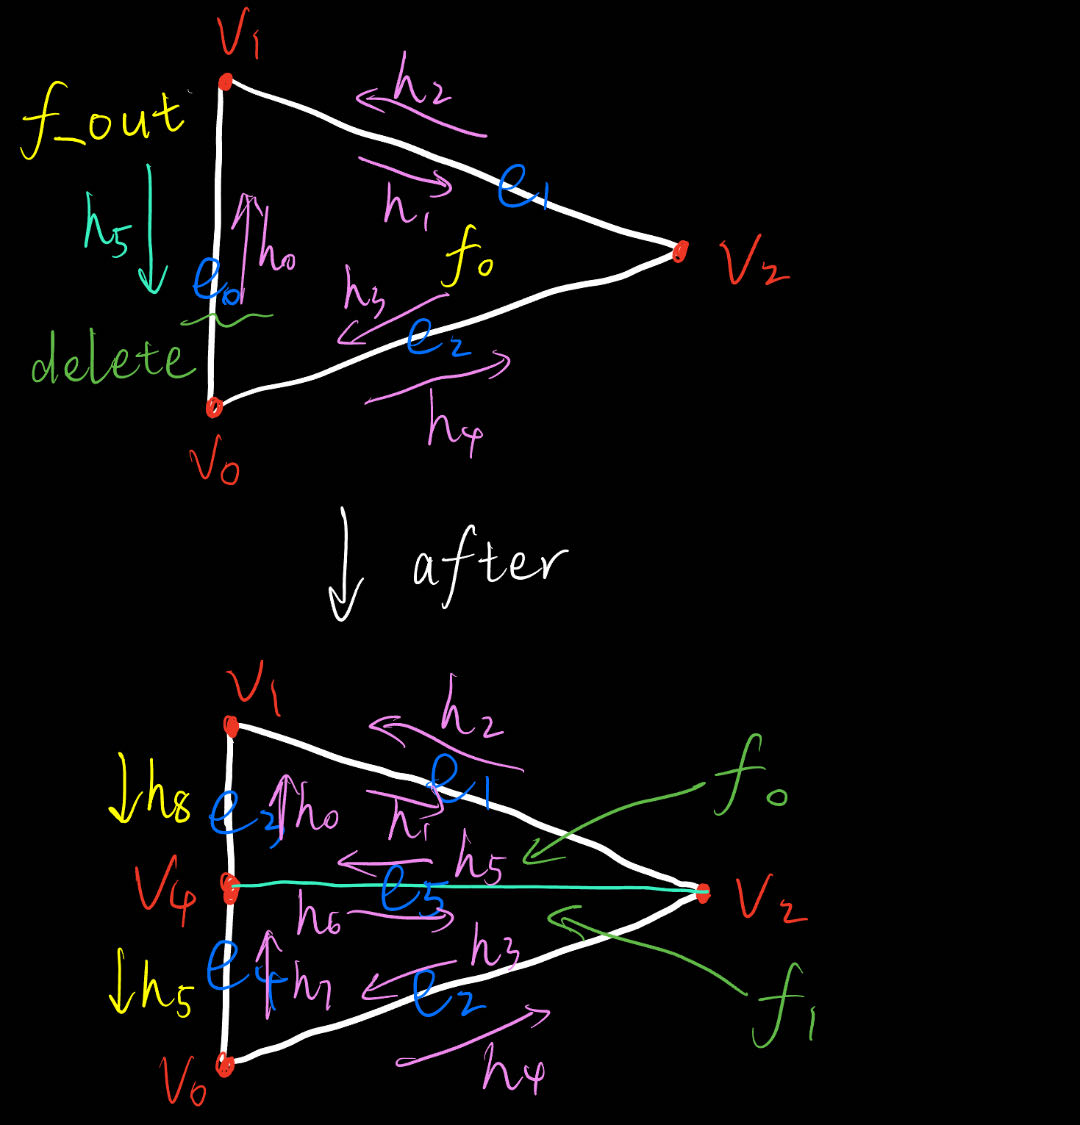 V1
f_out
h2
h1
e1
h5
h0
f0
V2
e0
h3
e2
delete
h4
V0
after
V1
h2
f0
h8
e3
h0
e1
h1
h5
V4
e5
V2
h6
h3
h5
e4
h7
e2
f1
h4
V0